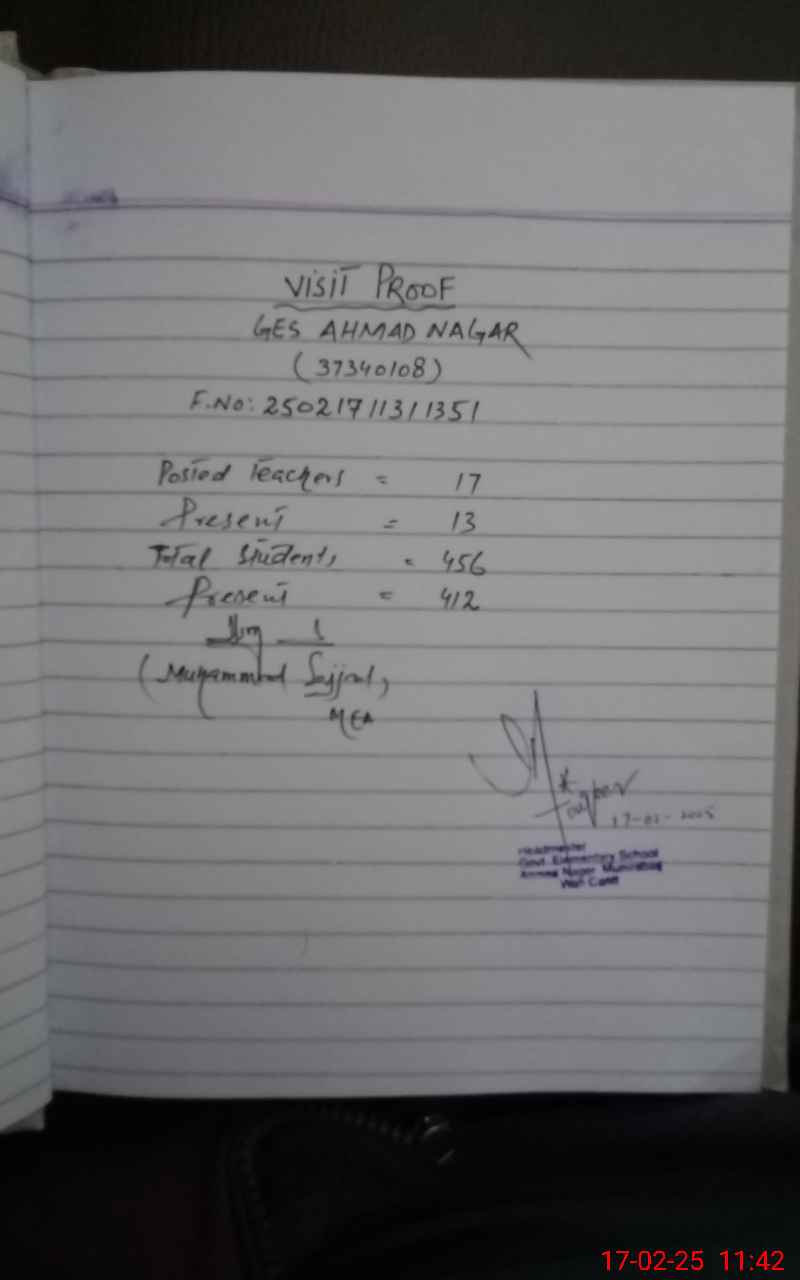 VISIT PROOF
GES AHMAD NAGAR
(37340108)
F.No: 250217113/1351
Posted Teachers = 17
Present = 13
Total Students = 456
Present = 412
(Muhammad Sajjad,
MEA
17-02-2025
Headmaster
Govt. Elementary School
Ahmad Nagar Munirabad
Wah Cantt
17-02-25 11:42